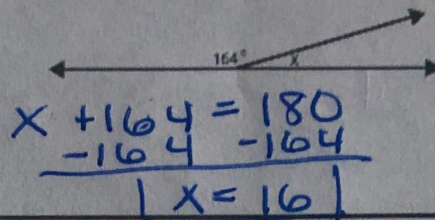 164° x
x + 164 = 180
-164 -164
x = 16